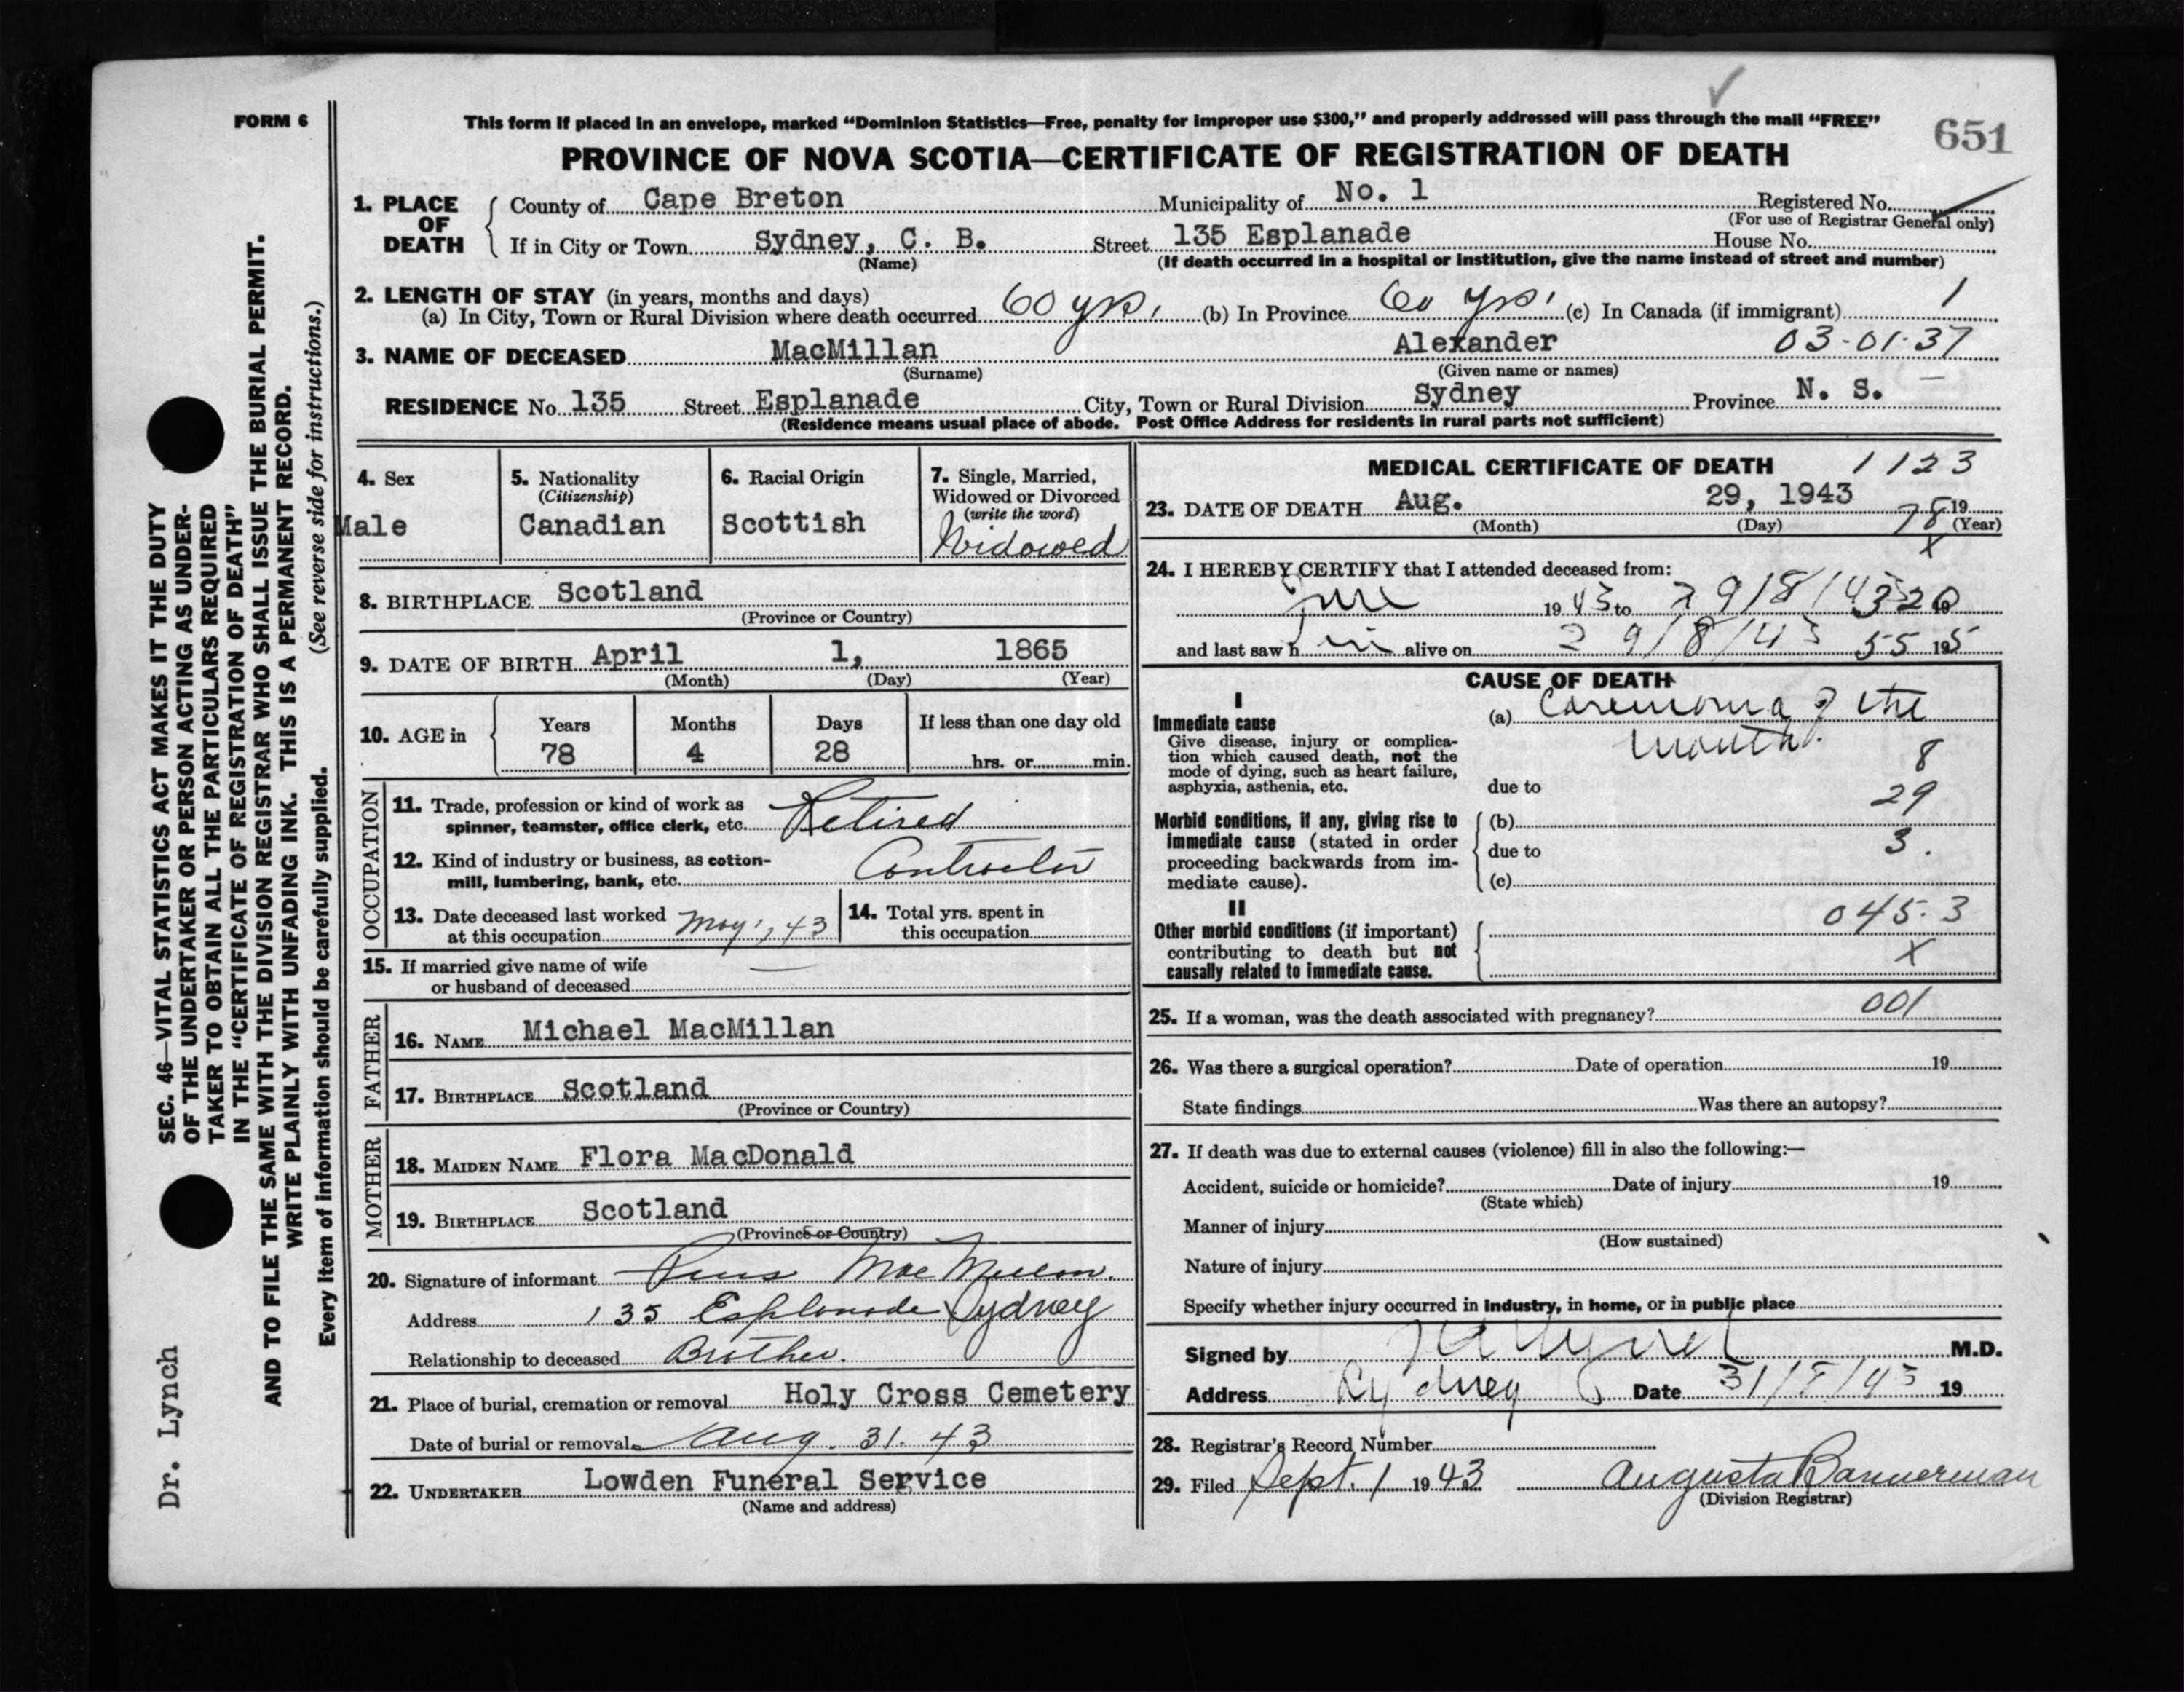 FORM 6
This form if placed in an envelope, marked “Dominion Statistics—Free, penalty for improper use $300,” and properly addressed will pass through the mail “FREE”
651
PROVINCE OF NOVA SCOTIA—CERTIFICATE OF REGISTRATION OF DEATH
1. PLACE OF DEATH
County of Cape Breton Municipality of No. 1 Registered No.
(For use of Registrar General only)
If in City or Town Sydney, C. B. Street 135 Esplanade House No.
(Name) (If death occurred in a hospital or institution, give the name instead of street and number)
2. LENGTH OF STAY (in years, months and days)
(a) In City, Town or Rural Division where death occurred 60 yrs. (b) In Province 60 yrs. (c) In Canada (if immigrant) 1
3. NAME OF DECEASED MacMillan Alexander 03-01-37
(Surname) (Given name or names)
RESIDENCE No. 135 Street Esplanade City, Town or Rural Division Sydney Province N. S.
(Residence means usual place of abode. Post Office Address for residents in rural parts not sufficient)
4. Sex
Male
5. Nationality
(Citizenship)
Canadian
6. Racial Origin
Scottish
7. Single, Married,
Widowed or Divorced
(write the word)
Widowed
8. BIRTHPLACE Scotland
(Province or Country)
9. DATE OF BIRTH April 1, 1865
(Month) (Day) (Year)
10. AGE in
Years Months Days If less than one day old
78 4 28 hrs. or min.
OCCUPATION
11. Trade, profession or kind of work as
spinner, teamster, office clerk, etc. Retired
12. Kind of industry or business, as cotton-
mill, lumbering, bank, etc. Contractor
13. Date deceased last worked
at this occupation May, 43
14. Total yrs. spent in
this occupation
15. If married give name of wife
or husband of deceased —
FATHER
16. NAME Michael MacMillan
17. BIRTHPLACE Scotland
(Province or Country)
MOTHER
18. MAIDEN NAME Flora MacDonald
19. BIRTHPLACE Scotland
(Province or Country)
20. Signature of informant MacMillan.
Address 135 Esplanade Sydney
Relationship to deceased Brother.
21. Place of burial, cremation or removal Holy Cross Cemetery
Date of burial or removal Aug. 31. 43
22. UNDERTAKER Lowden Funeral Service
(Name and address)
MEDICAL CERTIFICATE OF DEATH 1123
23. DATE OF DEATH Aug. 29, 1943 19
(Month) (Day) (Year)
78
X
24. I HEREBY CERTIFY that I attended deceased from:
June 1943 to 29/8/43 320
and last saw him alive on 29/8/43 555 19
CAUSE OF DEATH
I
Immediate cause
Give disease, injury or complica-
tion which caused death, not the
mode of dying, such as heart failure,
asphyxia, asthenia, etc.
(a) Carcinoma of the
mouth.
8
due to
29
Morbid conditions, if any, giving rise to
immediate cause (stated in order
proceeding backwards from im-
mediate cause).
(b)
due to
3.
(c)
II
Other morbid conditions (if important)
contributing to death but not
causally related to immediate cause.
045.3
X
25. If a woman, was the death associated with pregnancy? 001
26. Was there a surgical operation? Date of operation 19
State findings Was there an autopsy?
27. If death was due to external causes (violence) fill in also the following:—
Accident, suicide or homicide? Date of injury 19
(State which)
Manner of injury
(How sustained)
Nature of injury
Specify whether injury occurred in industry, in home, or in public place
Signed by Lynch M.D.
Address Sydney Date 31/8/43 19
28. Registrar's Record Number
29. Filed Sept. 1 1943 Augusta Bannerman
(Division Registrar)
SEC. 46—VITAL STATISTICS ACT MAKES IT THE DUTY
OF THE UNDERTAKER OR PERSON ACTING AS UNDER-
TAKER TO OBTAIN ALL THE PARTICULARS REQUIRED
IN THE “CERTIFICATE OF REGISTRATION OF DEATH”
AND TO FILE THE SAME WITH THE DIVISION REGISTRAR WHO SHALL ISSUE THE BURIAL PERMIT.
WRITE PLAINLY WITH UNFADING INK. THIS IS A PERMANENT RECORD.
(See reverse side for instructions.)
Every item of information should be carefully supplied.
Dr. Lynch